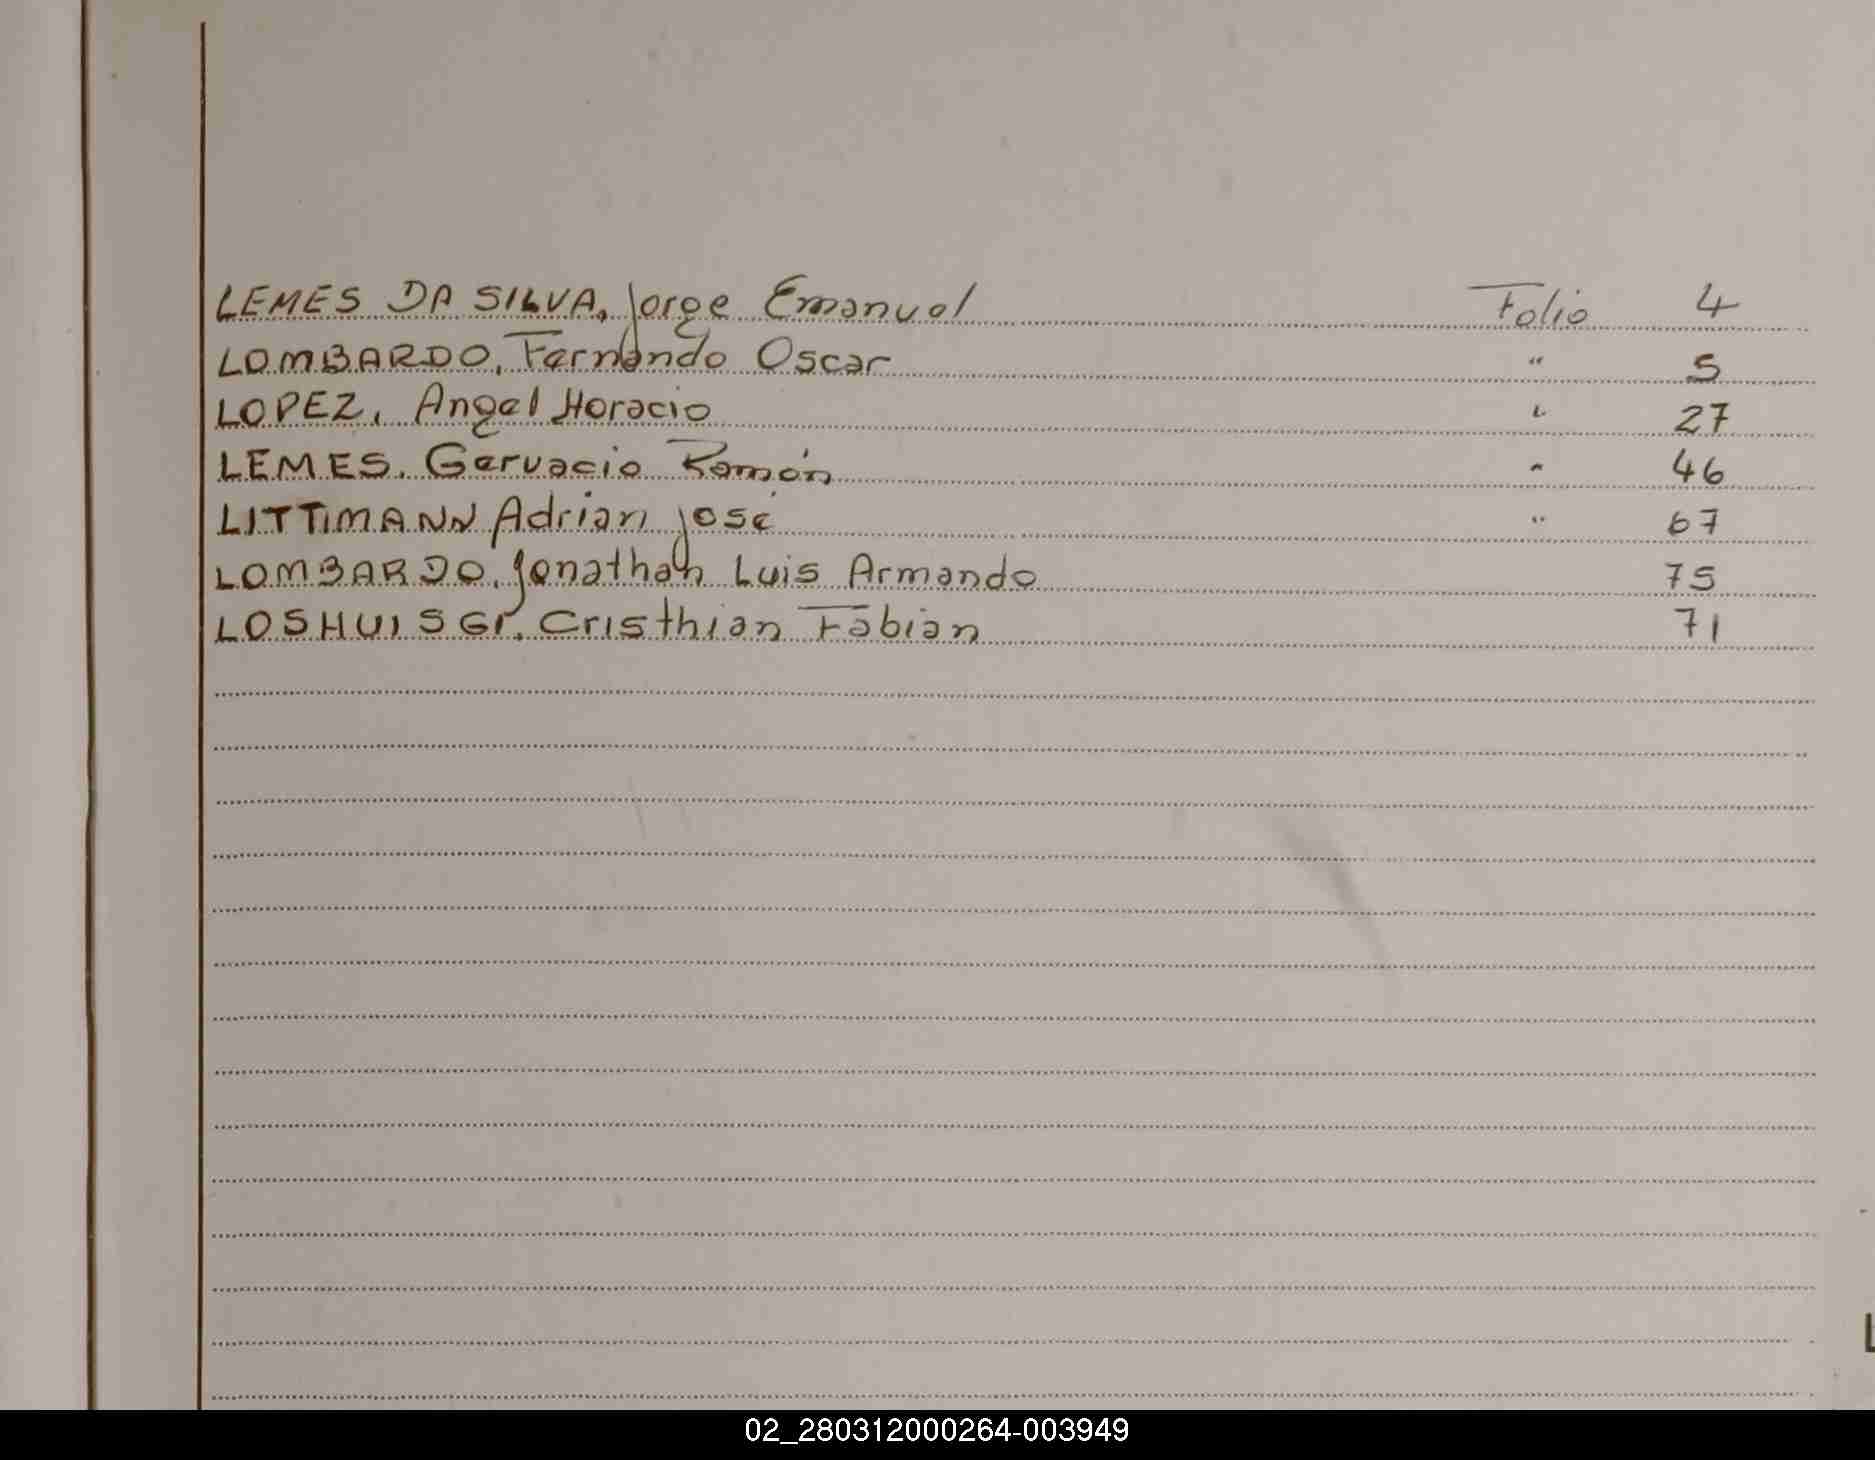 LEMES DA SILVA, Jorge Emanuel Folio 4
LOMBARDO, Fernando Oscar " 5
LOPEZ, Angel Horacio " 27
LEMES, Gervacio Ramón " 46
LITTIMANN Adrian José " 67
LOMBARDO, Jonathan Luis Armando 75
LOSHUISGI, Cristhian Fabian 71
L
02_280312000264-003949